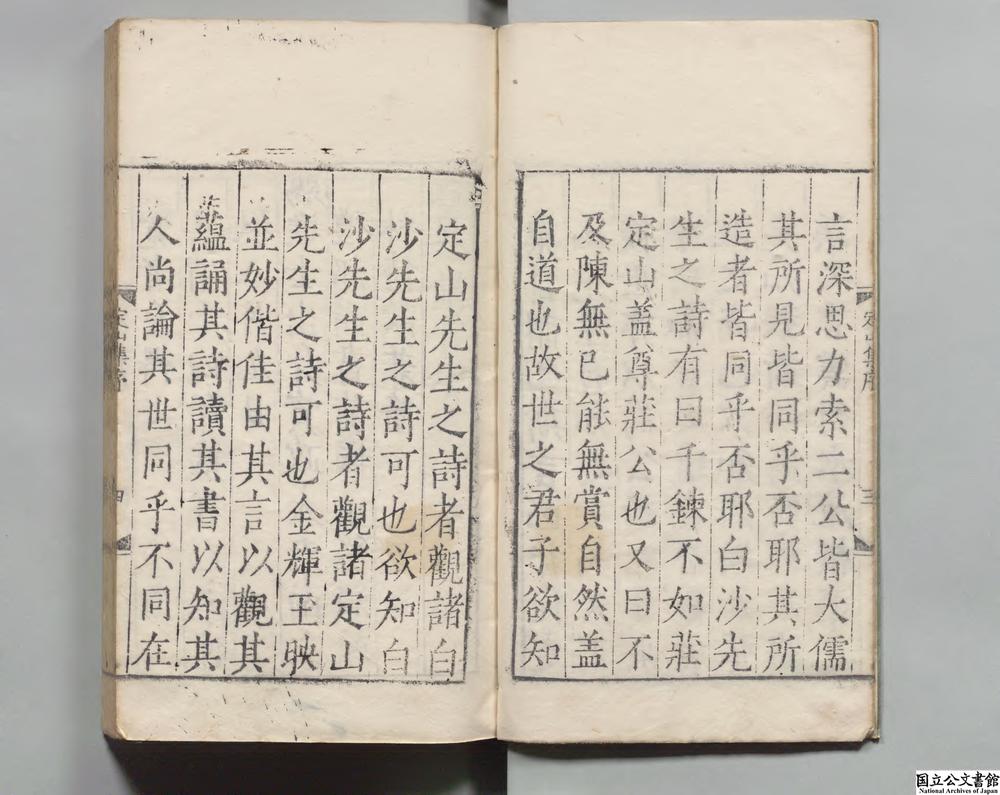 言深思力索二公皆大儒
其所見皆同乎否耶其所
造者皆同乎否耶白沙先
生之詩有曰千鍊不如莊
定山盖尊莊公也又曰不
及陳無已能無賞自然盖
自道也故世之君子欲知
定山集序
三
定山先生之詩者觀諸白
沙先生之詩可也欲知白
沙先生之詩者觀諸定山
先生之詩可也金輝玉映
並妙偕佳由其言以觀其
蘊誦其詩讀其書以知其
人尚論其世同乎不同在
定山集序
四
国立公文書館
National Archives of Japan